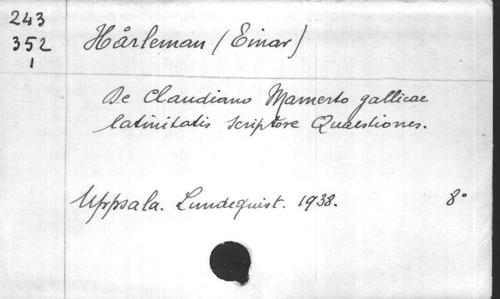 243
352
1
Hårleman (Einar)
De Claudiano Mamerto gallicae
latinitatis scriptore Quaestiones.
Uppsala. Lundequist. 1938. 8°